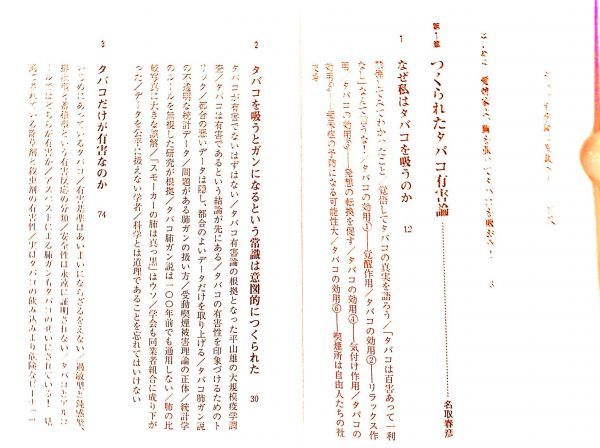 第1章 つくられたタバコ有害論 名取春彦
1 なぜ私はタバコを吸うのか 12
禁煙してみてわかったこと/覚悟してタバコの真実を語ろう/「タバコは百害あって一利
なし」なんてとんでもない!/タバコの効用①──覚醒作用/タバコの効用②──リラックス作
用/タバコの効用③──発想の転換を促す/タバコの効用④──気付け作用/タバコの
の予防になる可能性大/タバコの効用⑥──喫煙所は自由人たちの社
交場
2 タバコを吸うとガンになるという常識は意図的につくられた 30
タバコが有害でないはずはない/タバコ有害論の根拠となった平山雄の大規模疫学調
査/タバコは有害であるという結論が先にある/タバコの有害性を印象づけるためのト
リック/都合の悪いデータは隠し、都合のよいデータだけを取り上げる/タバコ肺ガン説
の不透明な統計データ/問題がある肺ガンの扱い方/受動喫煙被害理論の正体/統計学
のルールを無視した研究が根拠/タバコ肺ガン説は一〇〇年前でも通用しない/肺の比
較写真に大きな誤解/「スモーカーの肺は真っ黒」はウソ/学会も同業者組合に成り下が
った/データを公平に扱えない学者/科学とは道理であることを忘れてはいけない
3 タバコだけが有害なのか 74
じめにあっているタバコ/有害基準はあいまいにならざるをえない/過敏型と鈍感型、
排泄型と蓄積型という有害反応の分類/安全性は永遠に証明されない/タバコとアルコ
ールではどちらが有害か/アスベストによる肺ガンもタバコのせいにされている!/見
過ごされている除草剤と殺虫剤の有害性/実はタバコの飲み込みより危険なピーナッツ